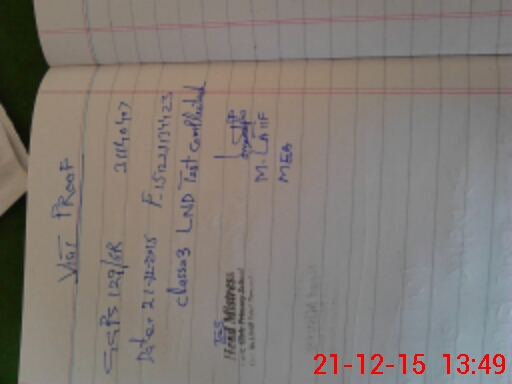 Visit PRooF
GGPS 129/6R 31140407
Date: 21-12-2015 F-151221134123
Class 3 LND Test completed
M. LATIF
MEA
Head Mistress
21-12-15 13:49